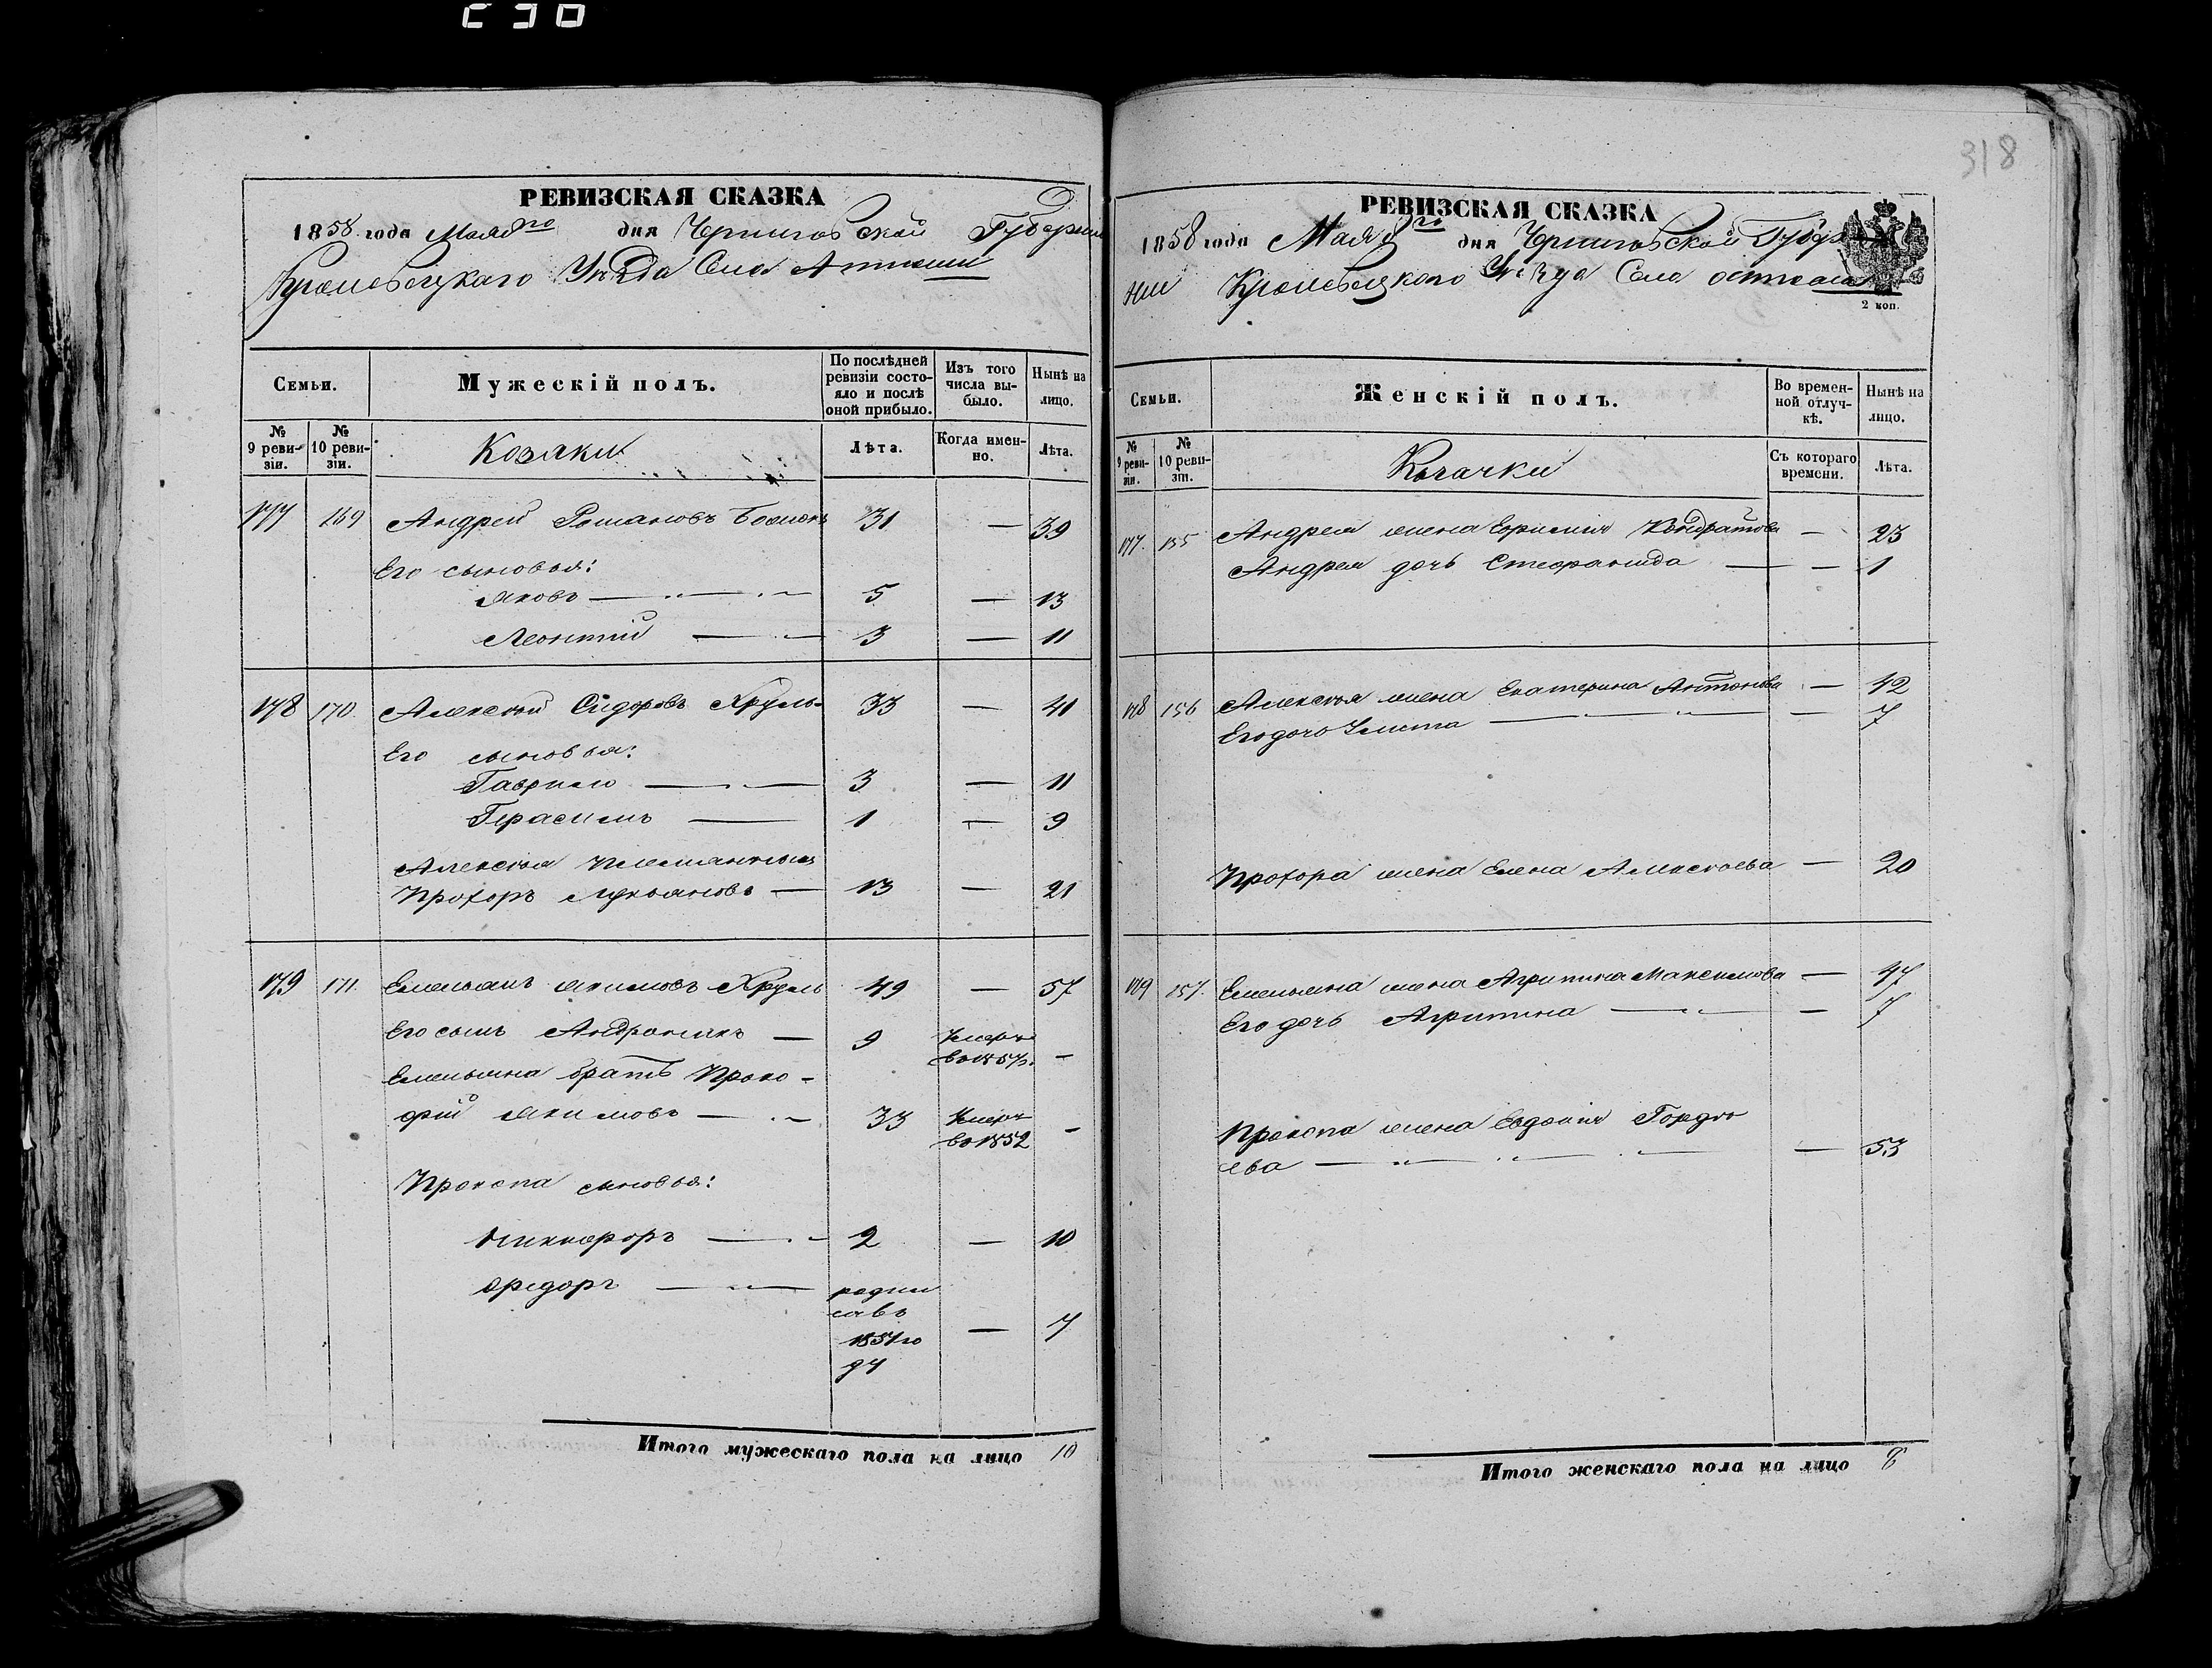 318
РЕВИЗСКАЯ СКАЗКА
1858 года Мая дня Черниговской Губернии
Кролевецкаго Уѣзда Села
Семьи.
Мужескій полъ.
По послѣдней ревизіи состояло и послѣ оной прибыло.
Изъ того числа выбыло.
Нынѣ на лицо.
№ 9 ревизіи.
№ 10 ревизіи.
Козаки
Лѣта.
Когда именно.
Лѣта.
177 169 Андрей Романовъ 31 — 39
Его сыновья:
Яковъ — 5 — 13
Леонтій — 3 — 11
178 170 Алексѣй Сидоровъ Хруль 33 — 41
Его сыновья:
Гаврило — 3 — 11
Герасимъ — 1 — 9
Алексѣя племянникъ
Прохоръ Лукьяновъ — 13 — 21
179 171 Емельянъ Якимовъ Хруль 49 — 57
Его сынъ Андроникъ — 9 Умеръ
въ 1857. —
Емельяна братъ Проко-
фій Якимовъ — 33 Умеръ
въ 1852 —
Прокопа сыновья:
Никифоръ — 2 — 10
Ѳедоръ — родил
ся въ
1851 го
ду — 7
Итого мужескаго пола на лицо 10
РЕВИЗСКАЯ СКАЗКА
1858 года Мая дня Черниговской Губер
нии Кролевецкаго Уѣзда Села
2 коп.
Семьи.
Женскій полъ.
Во временной отлучкѣ.
Нынѣ на лицо.
№ 9 ревизіи.
№ 10 ревизіи.
Козачки
Съ котораго времени.
Лѣта.
177. 155 Андрея жена Ефимія Кондратова — 23
Андрея дочь Стефанида — — 1
178 156 Алексѣя жена Екатерина Антонова — 42
Его дочь Улита — — 7
Прохора жена Елена Алексѣева — 20
179 157. Емельяна жена Агрипина Максимова — 47
Его дочь Агрипина — — 7
Прокопа жена Евдокия Гордѣ
ева — — 53
Итого женскаго пола на лицо 8